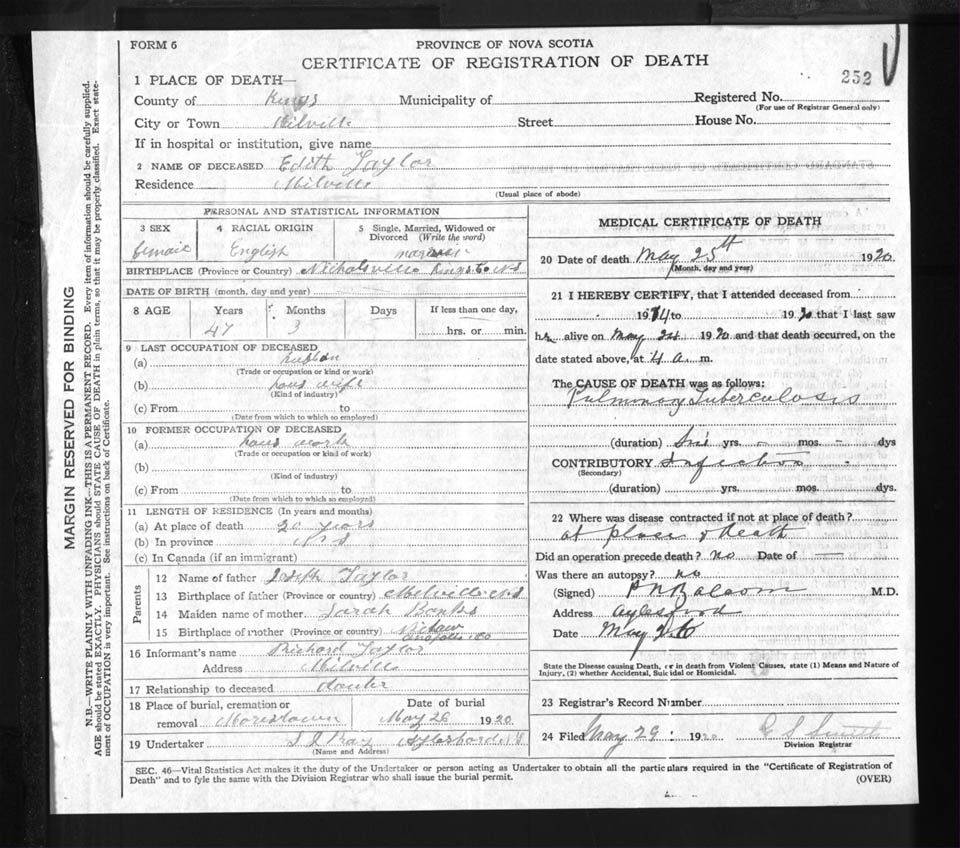 FORM 6
PROVINCE OF NOVA SCOTIA
CERTIFICATE OF REGISTRATION OF DEATH
252
1 PLACE OF DEATH—
County of Kings Municipality of Registered No.
(For use of Registrar General only)
City or Town Milville Street House No.
If in hospital or institution, give name
2 NAME OF DECEASED Edith Taylor
Residence Milville
(Usual place of abode)
PERSONAL AND STATISTICAL INFORMATION
3 SEX 4 RACIAL ORIGIN 5 Single, Married, Widowed or
Divorced (Write the word)
female English married
BIRTHPLACE (Province or Country) Nicholsville Kings Co NS
DATE OF BIRTH (month, day and year)
8 AGE Years Months Days If less than one day,
47 3 hrs. or min.
9 LAST OCCUPATION OF DECEASED
(a)
(Trade or occupation or kind or work)
(b) hous wife
(Kind of industry)
(c) From to
(Date from which to which so employed)
10 FORMER OCCUPATION OF DECEASED
(a) hous work
(Trade or occupation or kind of work)
(b)
(Kind of industry)
(c) From to
(Date from which to which so employed)
11 LENGTH OF RESIDENCE (In years and months)
(a) At place of death 20 years
(b) In province N S
(c) In Canada (if an immigrant)
Parents
12 Name of father Joseph Taylor
13 Birthplace of father (Province or country) Melville NS
14 Maiden name of mother Sarah Banks
15 Birthplace of mother (Province or country) Nictaux
Annapolis Co
16 Informant's name Richard Taylor
Address Milville
17 Relationship to deceased
18 Place of burial, cremation or Date of burial
removal Morristown May 26 1920
19 Undertaker Aylesford NS
(Name and Address)
MEDICAL CERTIFICATE OF DEATH
20 Date of death May 25th 1920
(Month, day and year)
21 I HEREBY CERTIFY, that I attended deceased from
1914 to 1920 that I last saw
her alive on May 24 1920 and that death occurred, on the
date stated above, at 4 a. m.
The CAUSE OF DEATH was as follows:
Pulmonary Tuberculosis
(duration) Six yrs. - mos. - dys
CONTRIBUTORY Infection
(Secondary)
(duration) yrs. mos. dys.
22 Where was disease contracted if not at place of death?
at place of death
Did an operation precede death? no Date of —
Was there an autopsy? no
(Signed) P N Balcom M.D.
Address Aylesford
Date May 26
State the Disease causing Death, or in death from Violent Causes, state (1) Means and Nature of
Injury, (2) whether Accidental, Suicidal or Homicidal.
23 Registrar's Record Number
24 Filed May 29 1920 E S Smith
Division Registrar
SEC. 46—Vital Statistics Act makes it the duty of the Undertaker or person acting as Undertaker to obtain all the particulars required in the "Certificate of Registration of
Death" and to fyle the same with the Division Registrar who shall issue the burial permit. (OVER)
MARGIN RESERVED FOR BINDING
N.B.—WRITE PLAINLY WITH UNFADING INK—THIS IS A PERMANENT RECORD. Every item of information should be carefully supplied.
AGE should be stated EXACTLY. PHYSICIANS should STATE CAUSE OF DEATH in plain terms, so that it may be properly classified. Exact state-
ment of OCCUPATION is very important. See instructions on back of Certificate.